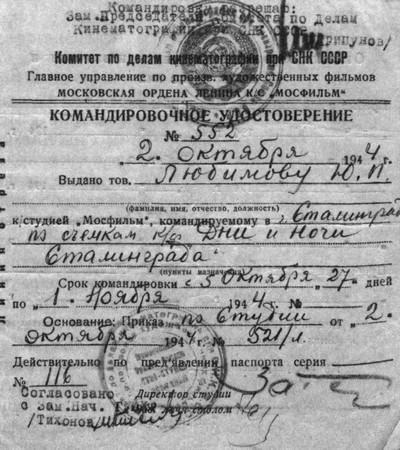 Командировку разрешаю:
Зам.Председателя Комитета по Делам
Кинематографии при СНК СССР
/Хрипунов/
Комитет по делам кинематографии при СНК СССР
Главное управление по произв. художественных фильмов
МОСКОВСКАЯ ОРДЕНА ЛЕНИНА К.С. „МОСФИЛЬМ"
КОМАНДИРОВОЧНОЕ УДОСТОВЕРЕНИЕ
№ 552
2. октября 1944 г.
Выдано тов. Любимову Ю. П.
(фамилия, имя, отчество, должность)
к студией „Мосфильм", командируемому в г. Сталинград
по съемкам к/ф Дни и Ночи
Сталинграда
(пункты назначения)
Срок командировки с 5 Октября 27 дней
по 1. Ноября 1944 г. №
Основание: Приказ по Студии от 2.
октября 1944 г. № 521/л.
Действительно по предъявлении паспорта серия
№ 116
Согласовано
с Зам.Нач.
/Тихонов/
Директор студии
Зав. уч. столом
линия отреза